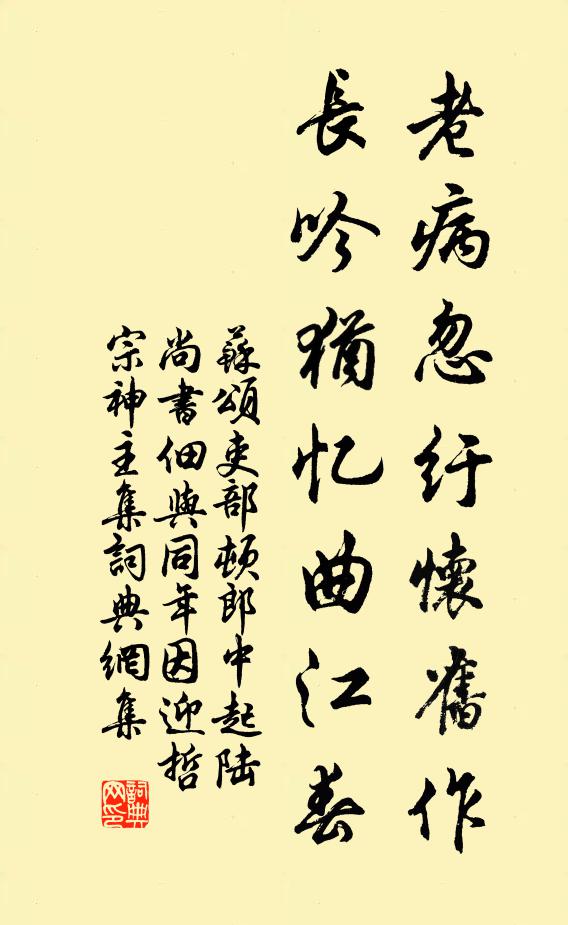 老病忽紆懷舊作
長吟猶忆曲江春
蘇頌吏部頓郎中起陆
尚書佃與同年因迎哲
宗神主集詞典網集
詞典
网印